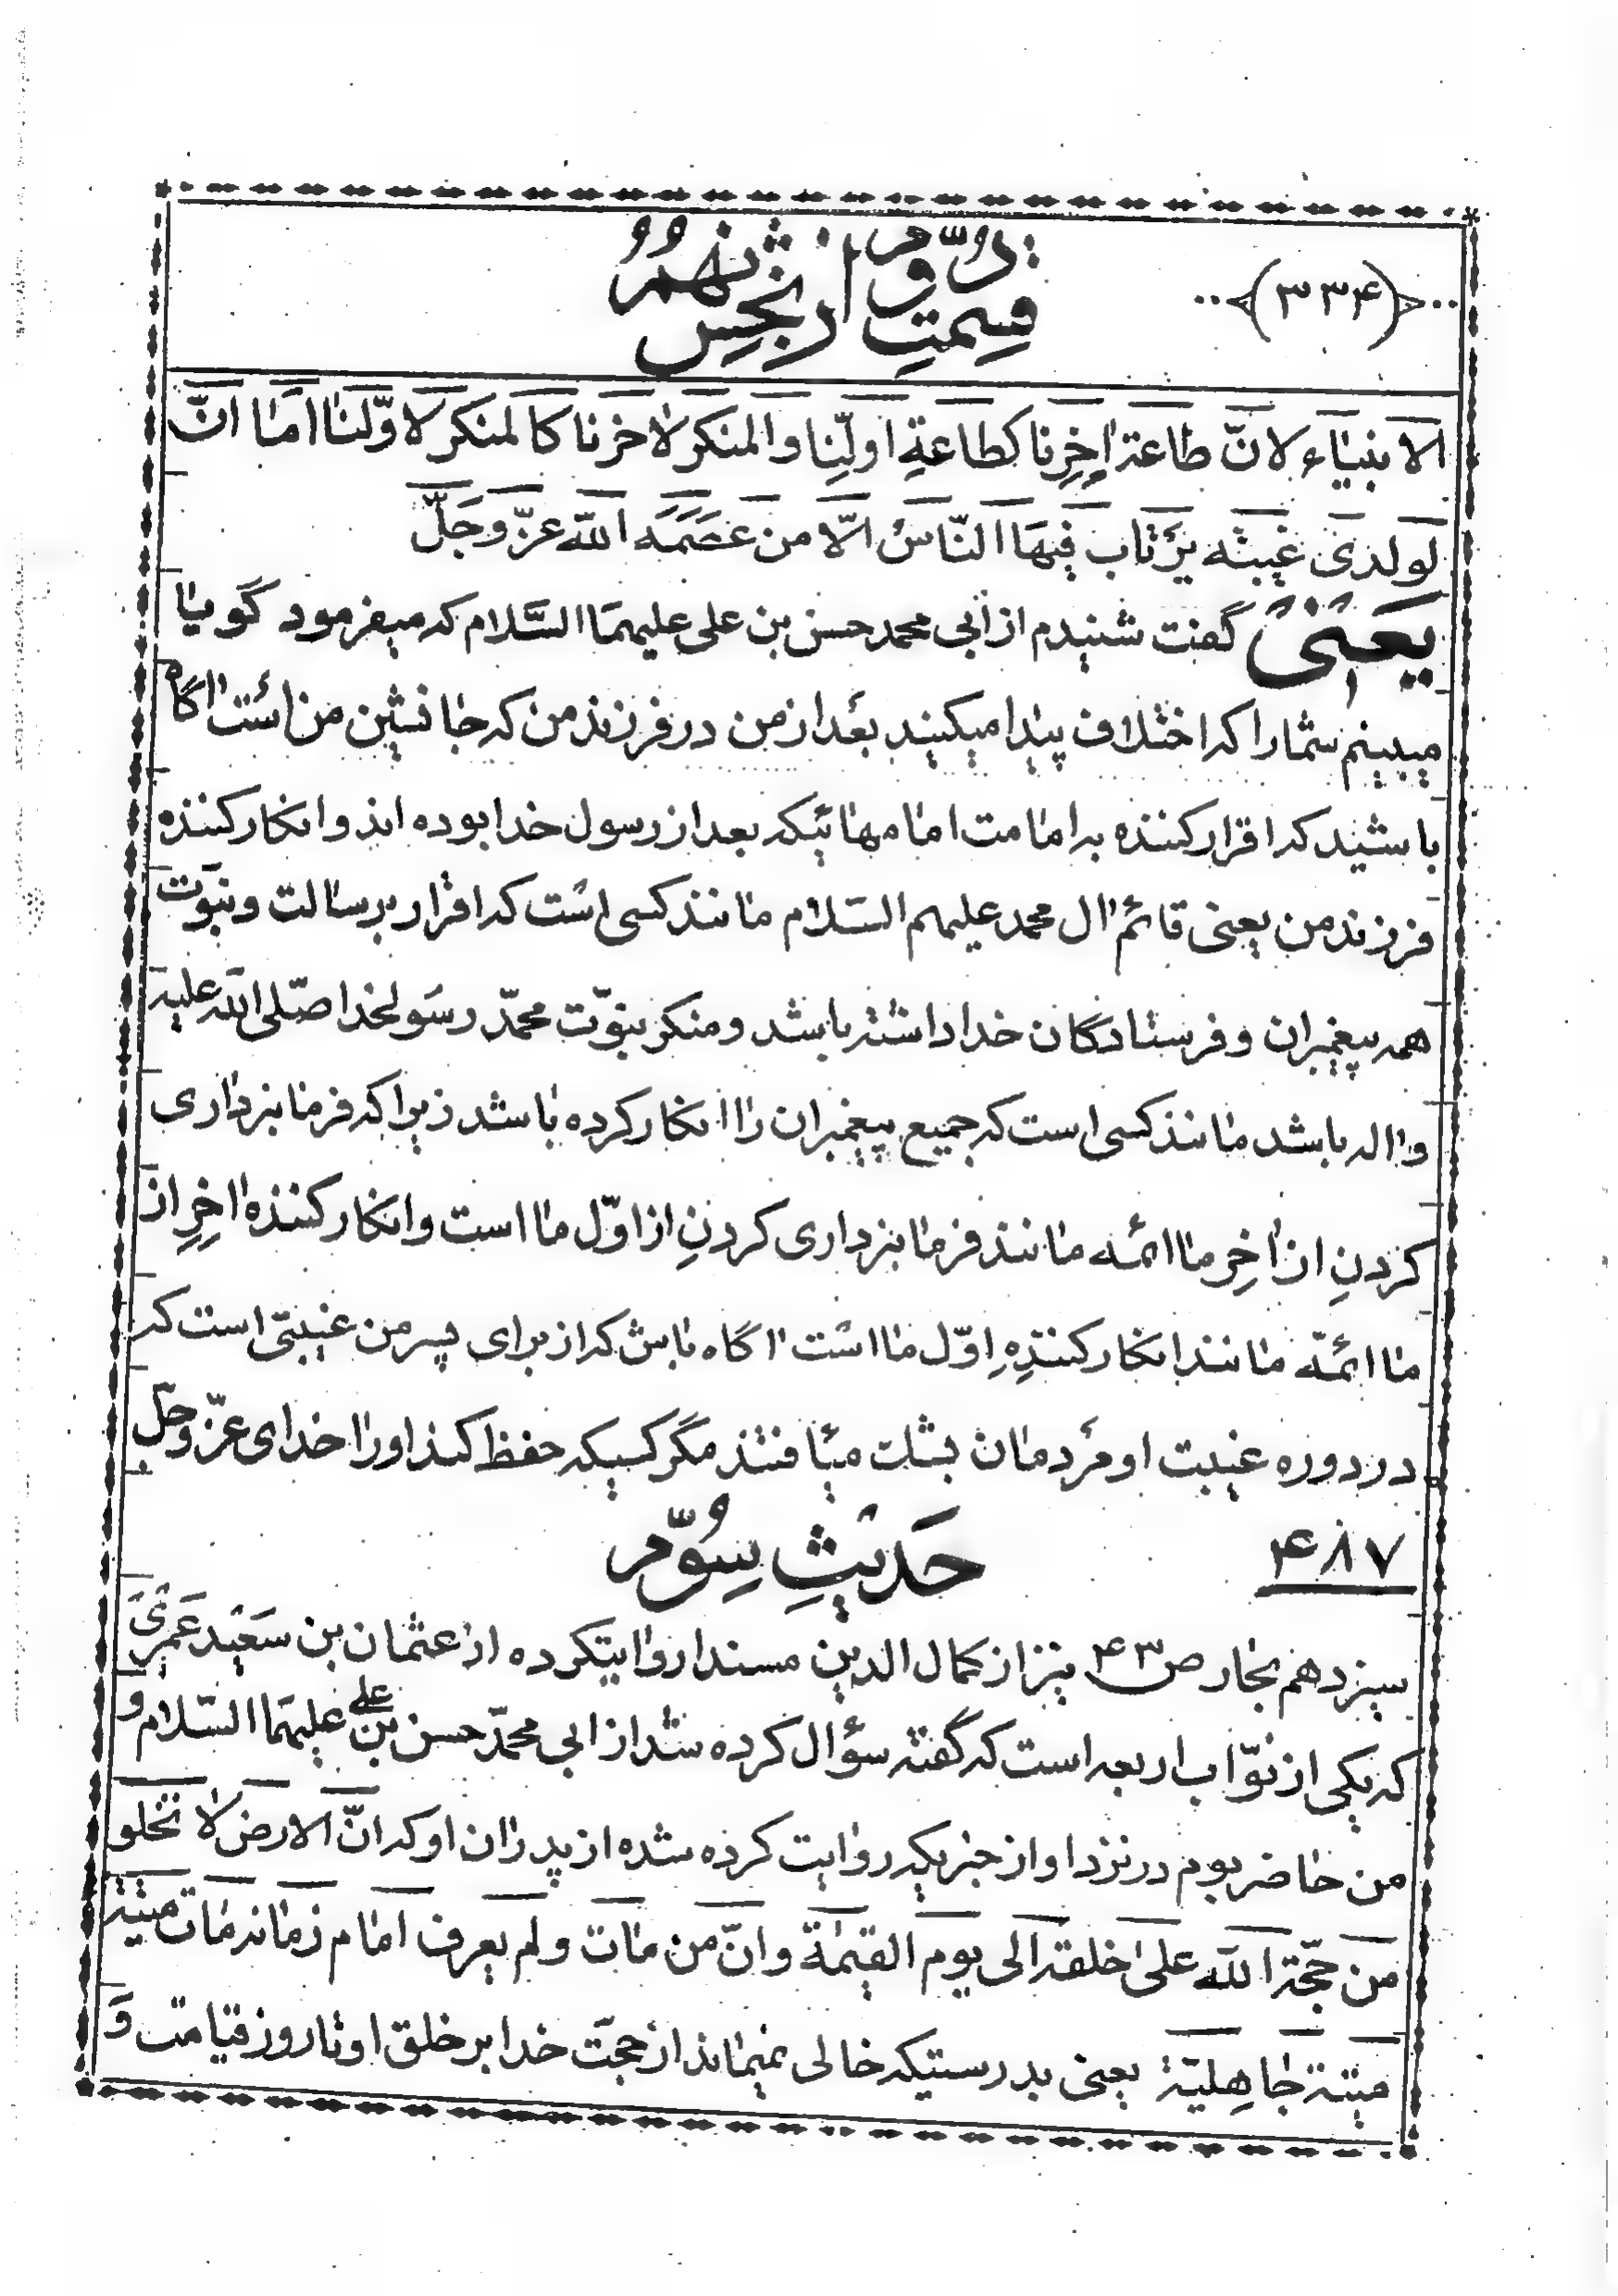 (۳۳۴)
قسمت دوم از بخش نهم
الانبیاء لانّ طاعة اخِرِنا کطاعةِ اولّنِا والمنکر لاخرنا کالمنکر لاوّلنا اما انّ
لولدی غیبته یرتاب فیها النّاس الّا من عصَمَه الله عزّ وجَلَّ
یعنی گفت شنیدم از ابی محمد حسن بن علی علیهمَا السَّلام که میفرمود گویا
میبینم شما را که اختلاف پیدا میکنید بعد از من در فرزند من که جانشین من است اگاه
باشید که اقرار کننده به امامت امامهائیکه بعد از رسول خدا بوده اند و انکار کننده
فرزند من یعنی قائم ال محمد علیهم السّلام مانند کسی است که اقرار برسالت و نبوّت
همه پیغمبران و فرستادگان خدا داشته باشد و منکر بنوّت محمدّ رسَولخدا صلّی الله علیه
واله باشد مانند کسی است که جمیع پیغمبران را انکار کرده باشد زیرا که فرمانبرداری
کردنِ از اخِر ما ائمه مانند فرمانبرداری کردنِ از اوّل ما است و انکار کننده اخِرِ از
ما ائمّه مانند انکار کنندهِ اوّل ما است اگاه باش که از برای پسر من غیبتی است که
در دوره غیبت او مردمان بشک میافتند مگر کسیکه حفظ کند او را خدای عزّ وجلّ
۴۸۷ حَدیثِ سِوُّم
سیزدهم بحار ص ۴۳ نیز از کمال الدین مسندا روایتکرده از عثمان بن سَعید عَمری
که یکی از نوّاب اربعه است که گفته سؤال کرده شد از ابی محمدّ حسن بن علی علیهمَا السّلام و
من حاضر بودم در نزد او از خبریکه روایت کرده شده از پدران او که انّ الارض لا تخلو
من حجّة الله علی خلقه الی یوم القیمة وانّ من مات ولم یعرف امام زمانه مات میتة
میتة جاهِلیّة یعنی بدرستیکه خالی نمیماند از حجت خدا بر خلق او تا روز قیامت وَ